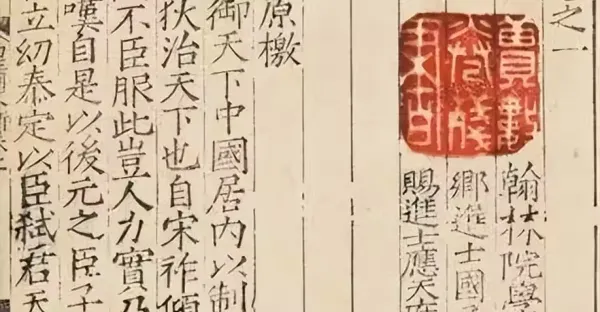 之一
翰林院學
鄉進士國子
賜進士應天府
原檄
御天下中國居內以制
狄治天下也自宋祚傾
不臣服此豈人力實乃
嘆自是以後元之臣子
立幼泰定以臣弒君天